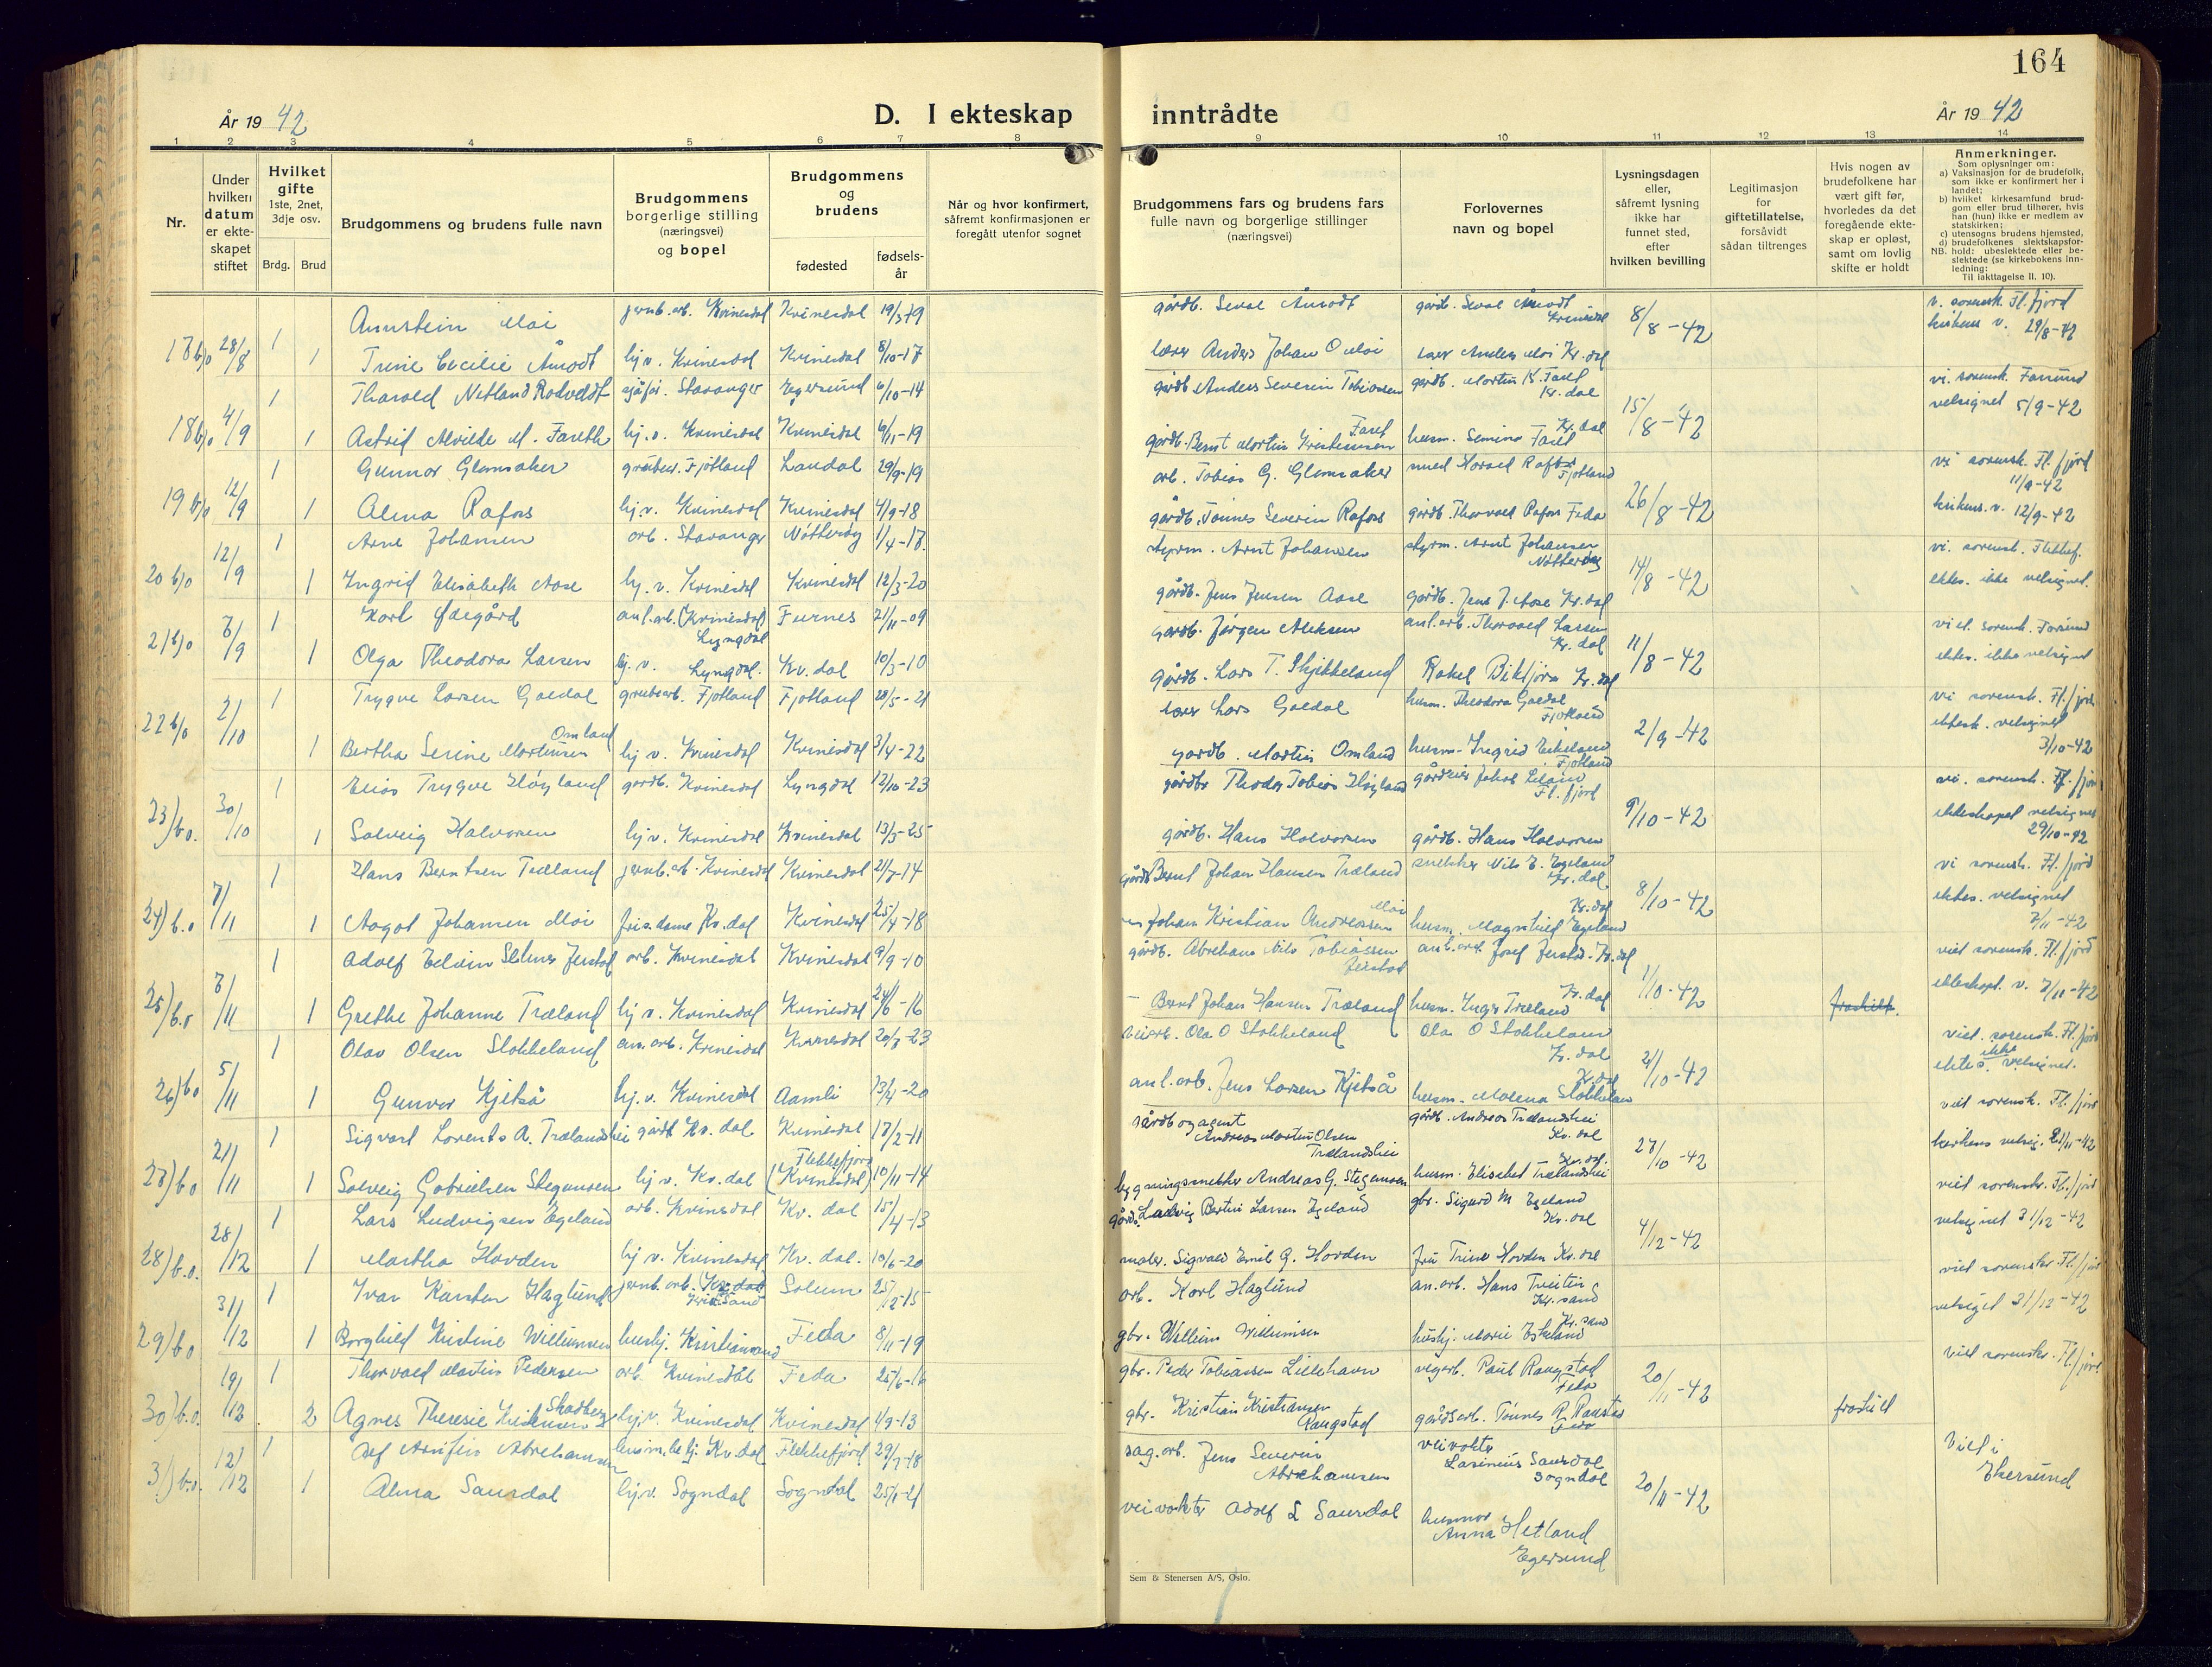 164
År 1942
D. I ekteskap inntrådte
År 1942
1 2 3 4 5 6 7 8 9 10 11 12 13 14
Nr.
Under
hvilken
datum
er ekte-
skapet
stiftet
Hvilket
gifte
1ste, 2net,
3dje osv.
Brdg. Brud
Brudgommens og brudens fulle navn
Brudgommens
borgerlige stilling
(næringsvei)
og bopel
Brudgommens
og
brudens
fødested
fødsels-
år
Når og hvor konfirmert,
såfremt konfirmasjonen er
foregått utenfor sognet
Brudgommens fars og brudens fars
fulle navn og borgerlige stillinger
(næringsvei)
Forlovernes
navn og bopel
Lysningsdagen
eller,
såfremt lysning
ikke har
funnet sted,
efter
hvilken bevilling
Legitimasjon
for
giftetillatelse,
forsåvidt
sådan tiltrenges
Hvis nogen av
brudefolkene har
vært gift før,
hvorledes da det
foregående ekte-
skap er opløst,
samt om lovlig
skifte er holdt
Anmerkninger.
Som oplysninger om:
a) Vaksinasjon for de brudefolk,
som ikke er konfirmert her i
landet;
b) hvilket kirkesamfund brud-
gom eller brud tilhører, hvis
han (hun) ikke er medlem av
statskirken;
c) utensogns brudens hjemsted,
d) brudefolkenes slektskapsfor-
NB. hold: ubeslektede eller be-
slektede (se kirkebokens inn-
ledning:
Til iakttagelse II. 10).
1 Arnstein Moi jernb.arb. Kvinesdal Kvinesdal 19/3-19 gårdb. Seval Åmodt gårdb. Seval Åmodt Kvinesdal 8/8-42 v. sorensk. Fl.fjord
17 b/o 28/8 1 Trine Cecilie Åmodt hj v. Kvinesdal Kvinesdal 8/10-17 lærer Anders Johan O Moi lærer Anders Moi Kv.dal kirkens v. 29/8-42
1 Tharald Netland Rodvedt sjåfør. Stavanger Egersund 6/10-14 gårdb Anders Severin Tobiassen gårdb. Martin K. Faret Kv.dal 15/8-42 vi. sorensk. Farsund
18 b/o 4/9 1 Astrid Alvilde M. Fareth hj.v. Kvinesdal Kvinesdal 6/11-19 gårdb. Bernt Martin Kristensen Faret husm. Semine Faret Kv.dal velsignet 5/9-42
1 Gunnar Glomsaker grubear. Fjotland Laudal 29/9-19 arb. Tobias G. Glomsaker Fjotland 26/8-42 vi sorensk. Fl.fjord 11/9-42
19 b/o 12/9 1 Alma Rafoss hj v. Kvinesdal Kvinesdal 4/9-18 gårdb. Tønnes Severin Rafoss gårdb. Thorvald Rafoss Feda kirkens. v. 12/9-42
1 Arne Johansen arb. Stavanger Nøtterøy 1/4-17. styrm. Arnt Johansen styrm. Arnt Johansen Nøtterøy 14/8-42 vi. sorensk. Flekkef.
20 b/o 12/9 1 Ingrid Elisabeth Aase hj. v. Kvinesdal Kvinesdal 12/3-20 gårdb. Jens Jensen Aase gårdb. Jens J. Aase Kv.dal ektes. ikke velsignet.
1 Karl Ødegård anl.arb. (Kvinesdal) Lyngdal Furnes 21/11-09 gårdb. Jørgen Aleksen anl.arb. Thorvald Larsen Kv.dal 11/8-42 viet. sorensk. Farsund
21 b/o 7/9 1 Olga Theodora Larsen hj. v. Lyngdal. Kv.dal 10/3-10 gårdb. Lars T. Skjekkeland Rakel Birkjem Kv.dal ektes. ikke velsignet
1 Trygve Larsen Gaedal grubearb. Fjotland Fjotland 28/5-21 lærer Lars Gaedal husm. Theodora Gaedal Fjotland 2/9-42 vi sorensk. Fl.fjord
22 b/o 2/10 1 Bertha Serine Mortensen Omland hj v. Kvinesdal Kvinesdal 3/4-22 gårdb. Martin Omland husm. Ingrid Eikeland Fjotland ektesk. velsignet 3/10-42
1 Elias Trygve Høyland gårdb. Kvinesdal Lyngdal 12/10-23 gårdbr Theodor Tobias Høyland Fl.fjord 9/10-42 vi. sorensk. Fl.fjord
23) b.o. 30/10 1 Solveig Halvorsen hj v. Kvinesdal Kvinesdal 13/3-25 gårdb. Hans Halvorsen gårdb. Hans Halvorsen ekteskapet velsignet 29/10-42
1 Hans Berntsen Træland jernb.arb. Kvinesdal Kvinesdal 21/7-14 gårdb Bernt Johan Hansen Træland snekker Nils E. Egeland Kv.dal. 8/10-42 vi sorensk. Fl.fjord
24) b.o 7/11 1 Aagot Johansen Moi fris.dame Kv.dal Kvinesdal 25/4-18 Johan Kristian Andreassen Moi husm. Magnhild Egeland Kv.dal ektes. velsignet 7/11-42
1 Adolf Edvin Selmer Jerstad arb. Kvinesdal Kvinesdal 9/9-10 gårdb. Abraham Nils Tobiassen Jerstad anl.arb. Josef Jerstad Kv.dal 1/10-42 viet sorensk. Fl.fjord
25) b.o 7/11 1 Grethe Johanne Træland hj v. Kvinesdal Kvinesdal 24/6-16 – Bernt Johan Hansen Træland husm. Inger Træland Kv.dal fraskilt. ekteskapt. v. 7/10-42
1 Olav Olsen Stokkeland an.arb. Kvinesdal Kvinesdal 20/3-23 veiarb. Ola O Stokkeland Ola O Stokkeland Kv.dal 21/10-42 viet. sorensk. Fl.fjord
26) b.o 5/11 1 Gunvor Kjetså hj. v. Kvinesdal Aamli 23/4-20 anl.arb. Jens Larsen Kjetså husm. Malena Stokkeland Kv.dal ektes. ikke velsignet.
1 Sigvart Lorents A. Trælandshei gårdb Kv.dal Kvinesdal 17/2-11 gårdb og agent Andreas Martin Olsen Trælandshei gårdb. Andreas Trælandshei Kv.dal 27/10-42 viet sorensk. Fl.fjord
27) b.o 21/11 1 Solveig Gabrielsen Stegansen hj v. Kv.dal Flekkefjord (Kvinesdal) 10/11-14 byggningssnekker Andreas G. Stegansen husm. Elisabet Trælandshei Kv.dal. kirkens velsig. 21/11-42
1 Lars Ludvigsen Egeland arb. Kvinesdal Kv. dal 15/4-13 gårdb. Ludvig Bertin Larsen Egeland gbr. Sigurd M Egeland Kv.dal 4/12-42 viet sorenskr. Fl.fjord
28) b.o. 28/12 1 Martha Hovden hj v. Kvinesdal Kv. dal. 10/6-20 maler. Sigvald Emil G. Hovden fru Trine Hovden Kv.dal velsignet 31/12-42
1 Ivar Karsten Haglund jernb.arb. (Kv.dal) Kr.sand Solum 25/12-15 arb. Karl Haglund an.arb. Hans Treitin Kr.sand viet sorenskr Fl.fjord
29) b.o 31/12 1 Borghild Kristine Willumsen hushj. Kristiansand Feda 8/11-19 gbr. Willum Willumsen hushj. Marie Eskeland Kr.sand velsiget 31/12-42
1 Thorvald Martin Pedersen arb. Kvinesdal Feda 25/6-16 gbr. Peder Tobiassen Lillehavn vegarb. Paul Raugstad Feda 20/11-42 viet sorenskr. Fl.fjord
30) b.o. 19/12 2 Agnes Theresie Kristensen Skadberg hj.v. Kvinesdal Kvinesdal 4/9-13 gbr. Kristian Kristiansen Raugstad gårdsarb. Tønnes R. Raustad Feda fraskilt
1 Alf Arnfin Abrahamsen Kv.dal Flekkefjord 29/7-18 sag.arb. Jens Severin Abrahamsen veivokter Lasinius Saurdal Sogndal 20/11-42 Viet i Ekersund
31) b.o. 12/12 1 Alma Saurdal hj.v. Sogndal Sogndal 25/1-21 veivokter Adolf L Saurdal husmor Anna Hetland Egersund
Sem & Stenersen A/S, Oslo.